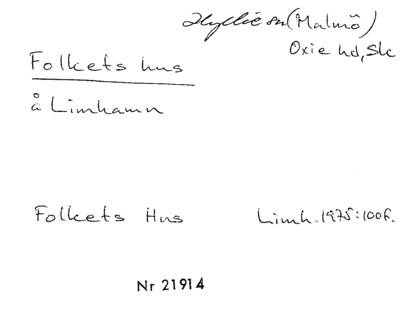 Hyllie sn (Malmö)
Oxie hd, Sk
Folkets hus
å Limhamn
Folkets Hus Limh. 1975:100f.
Nr 21914